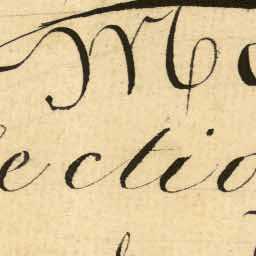 Mo
ectio